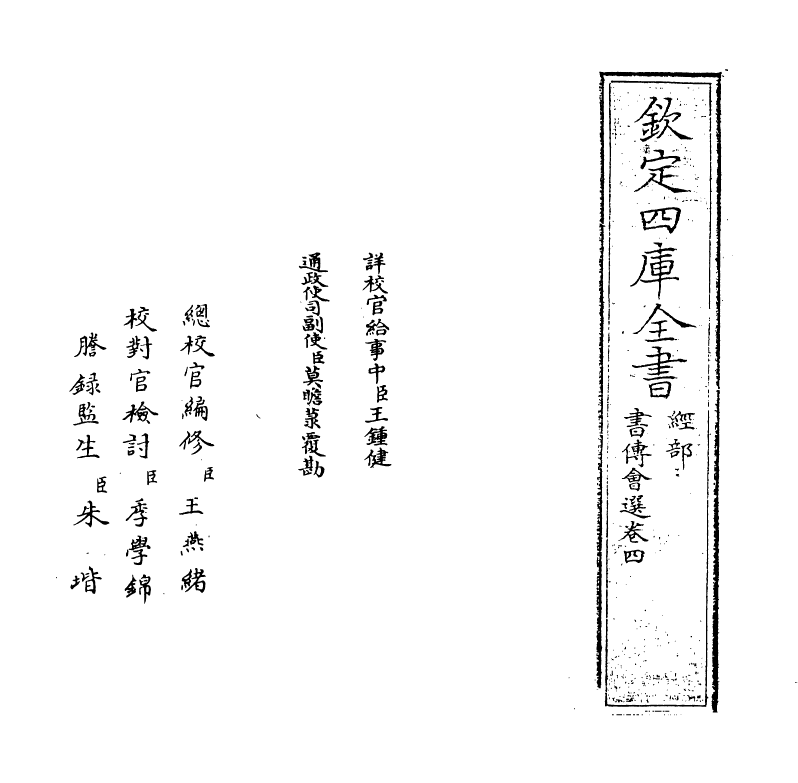 欽定四庫全書
經部
書傳會選卷四
詳校官給事中臣王鍾健
通政使司副使臣莫瞻菉覆勘
總校官編修臣王燕緒
校對官檢討臣季學錦
謄錄監生臣朱堦